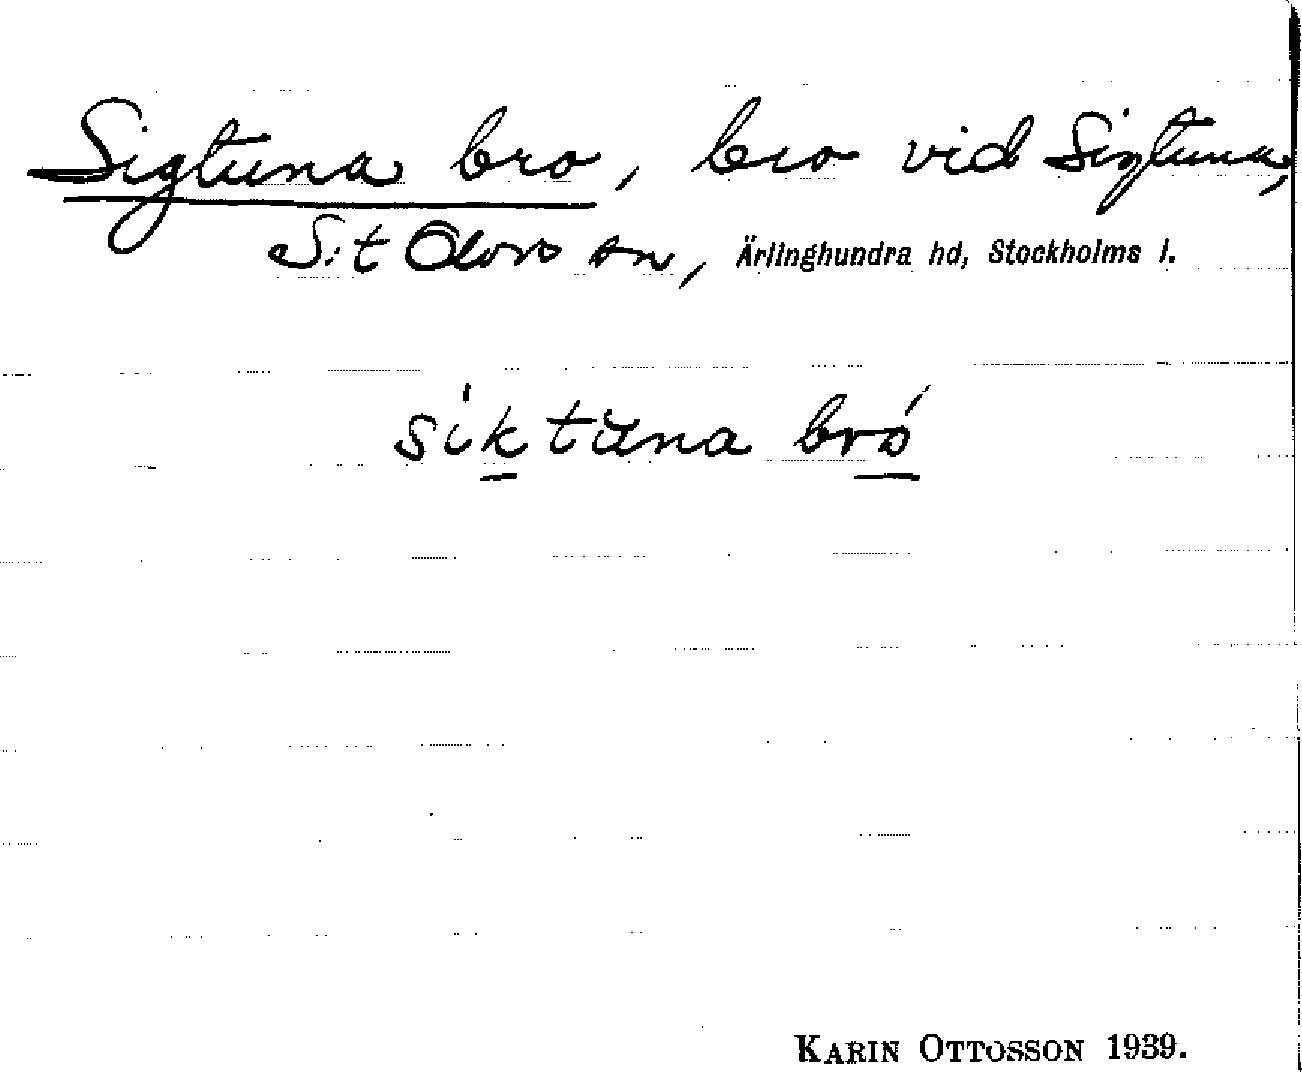 Sigtuna bro, bro vid Sigtuna,
S:t Olovs sn, Ärlinghundra hd, Stockholms l.
siktuna bró
KARIN OTTOSSON 1939.